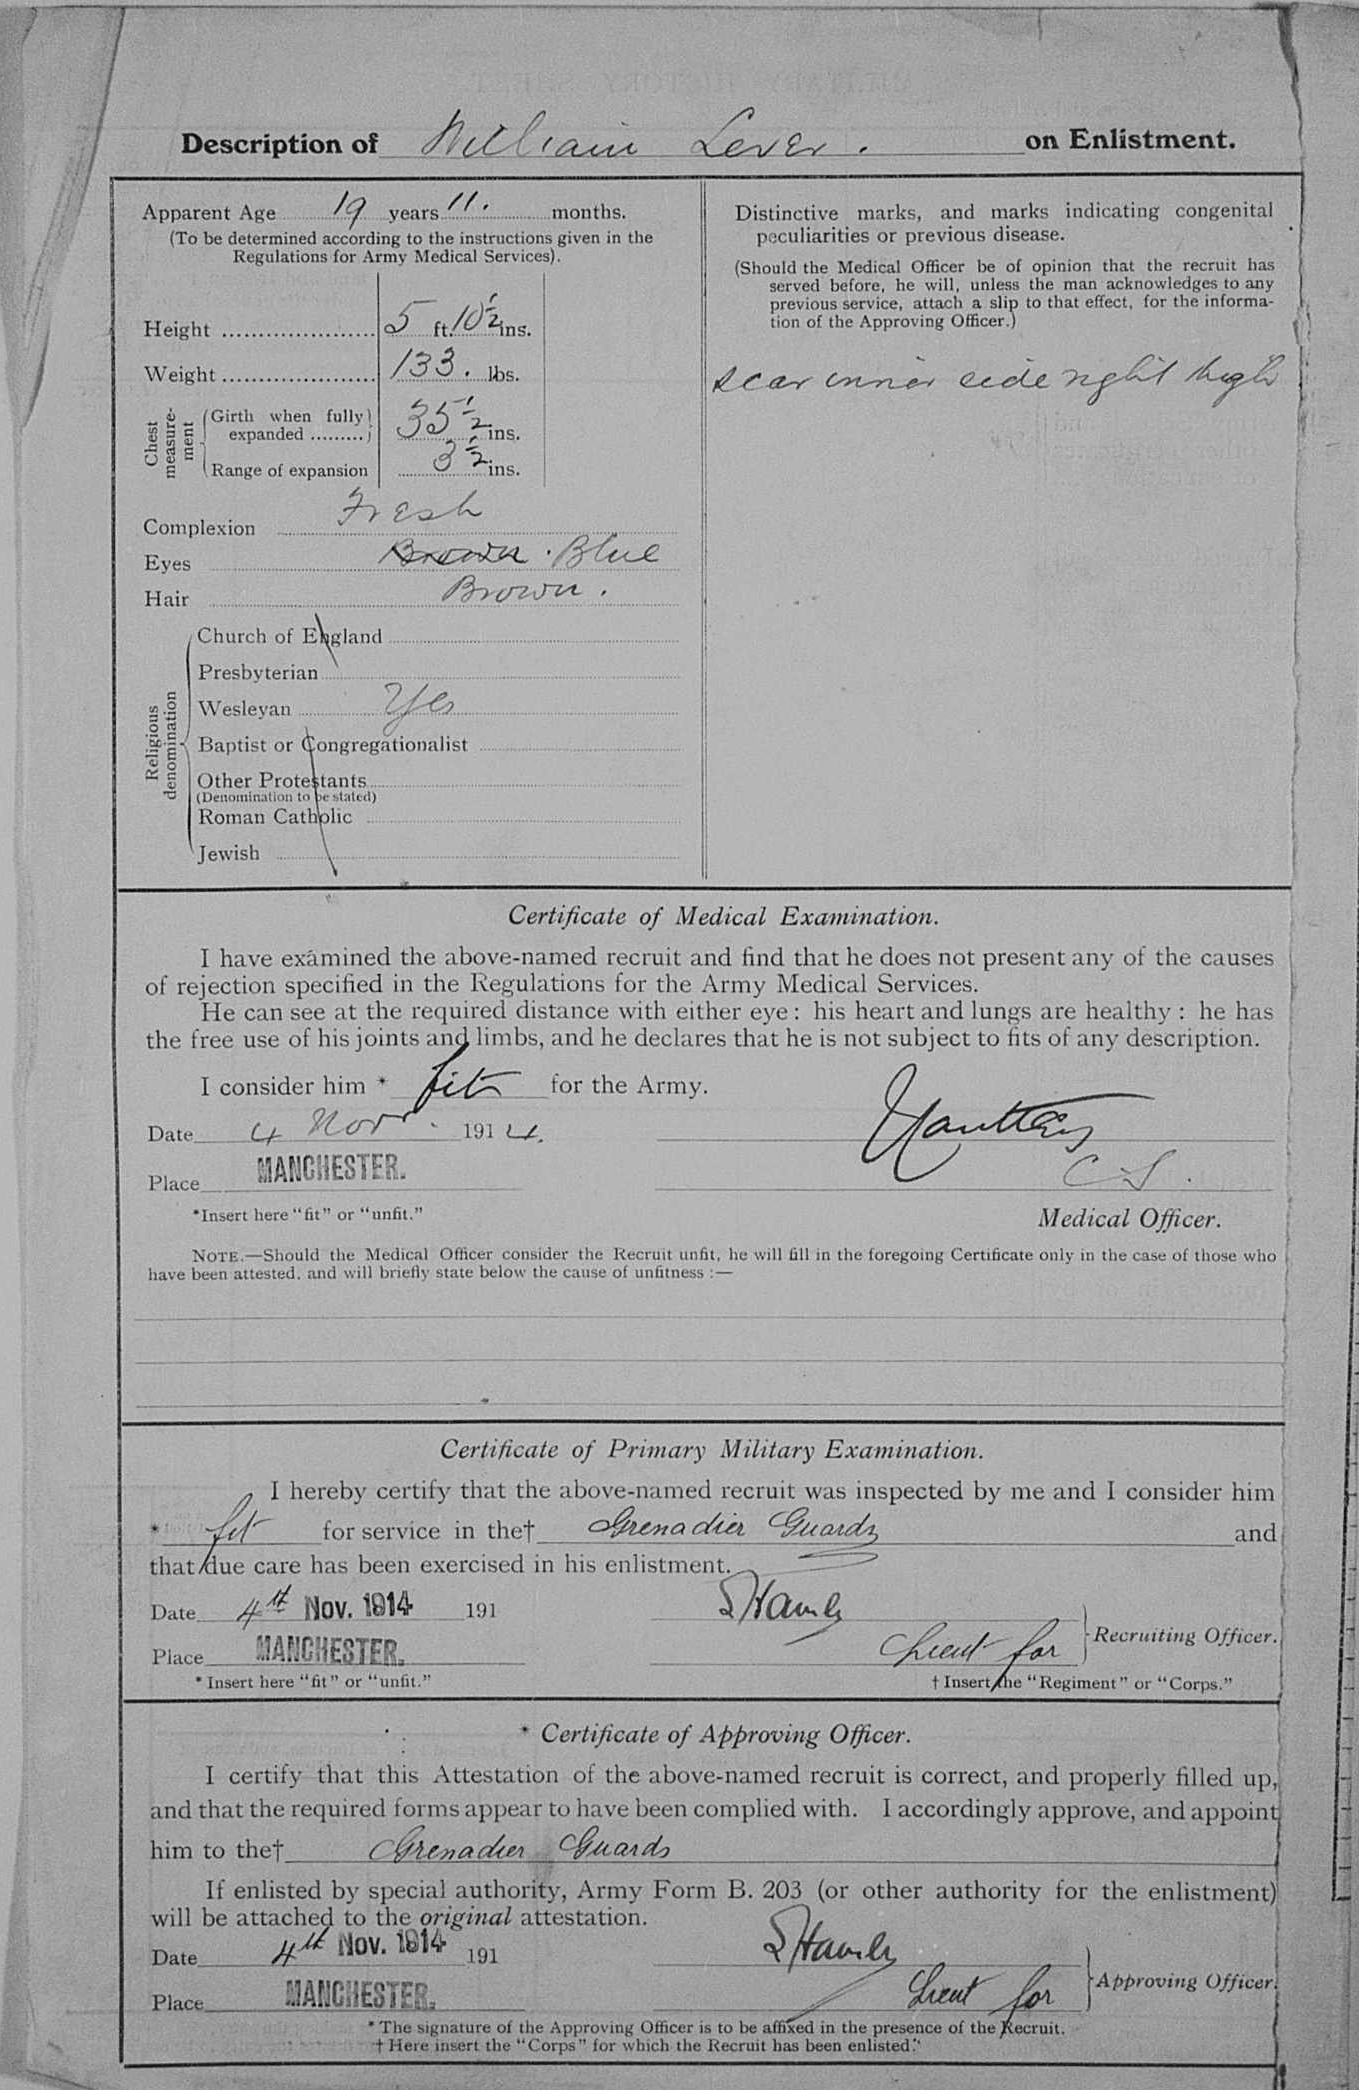 Description of William Lever. on Enlistment.
Apparent Age 19 years 11. months.
(To be determined according to the instructions given in the
Regulations for Army Medical Services).
Height 5 ft. 10½ ins.
Weight 133. lbs.
Chest measure-ment
Girth when fully
expanded 35½ ins.
Range of expansion 3½ ins.
Complexion Fresh
Eyes Brown . Blue
Hair Brown.
Religious denomination
Church of England
Presbyterian
Wesleyan Yes
Baptist or Congregationalist
Other Protestants
(Denomination to be stated)
Roman Catholic
Jewish
Distinctive marks, and marks indicating congenital
peculiarities or previous disease.
(Should the Medical Officer be of opinion that the recruit has
served before, he will, unless the man acknowledges to any
previous service, attach a slip to that effect, for the informa-
tion of the Approving Officer.)
scar inner side right thigh
Certificate of Medical Examination.
I have examined the above-named recruit and find that he does not present any of the causes
of rejection specified in the Regulations for the Army Medical Services.
He can see at the required distance with either eye: his heart and lungs are healthy: he has
the free use of his joints and limbs, and he declares that he is not subject to fits of any description.
I consider him * fit for the Army.
Date 4 Novr. 1914.
Place MANCHESTER.
C S.
*Insert here "fit" or "unfit."
Medical Officer.
NOTE.—Should the Medical Officer consider the Recruit unfit, he will fill in the foregoing Certificate only in the case of those who
have been attested, and will briefly state below the cause of unfitness:—
Certificate of Primary Military Examination.
I hereby certify that the above-named recruit was inspected by me and I consider him
* fit for service in the† Grenadier Guards and
that due care has been exercised in his enlistment.
Date 4th Nov. 1914 191
Place MANCHESTER.
Lieut for Recruiting Officer.
*Insert here "fit" or "unfit."
† Insert the "Regiment" or "Corps."
* Certificate of Approving Officer.
I certify that this Attestation of the above-named recruit is correct, and properly filled up,
and that the required forms appear to have been complied with. I accordingly approve, and appoint
him to the† Grenadier Guards
If enlisted by special authority, Army Form B. 203 (or other authority for the enlistment)
will be attached to the original attestation.
Date 4th Nov. 1914 191
Place MANCHESTER.
Lieut for Approving Officer.
*The signature of the Approving Officer is to be affixed in the presence of the Recruit.
† Here insert the "Corps" for which the Recruit has been enlisted."